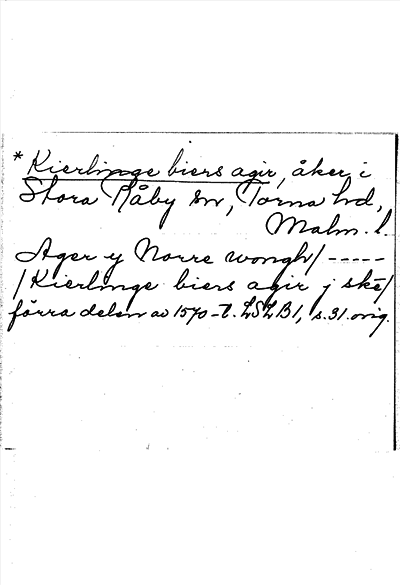 * Kierlinge biers agir, åker i
Stora Råby sn, Torna hd,
Malm. l.
Ager y Norre wongh/ -----
/Kierlinge biers agir j skē/
förra delen av 1570-t. LSLB1, s.31.orig.